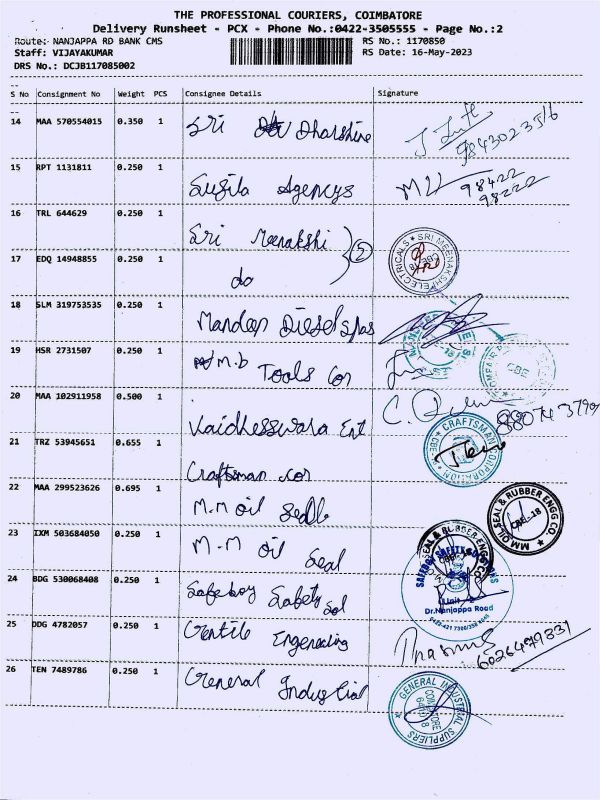 THE PROFESSIONAL COURIERS, COIMBATORE
Delivery Runsheet - PCX - Phone No.:0422-3505555 - Page No.:2
Route: NANJAPPA RD BANK CMS
RS No.: 1170850
Staff: VIJAYAKUMAR
RS Date: 16-May-2023
DRS No.: DCJB117085002
S No Consignment No Weight PCS Consignee Details Signature
14 MAA 570554015 0.350 1 Sri Dharshine
15 RPT 1131811 0.250 1 Susila Agencys
98422
98222
16 TRL 644629 0.250 1 Sri Meenakshi
2
17 EDQ 14948855 0.250 1 do
SRI MEENAKSHI ELECTRICALS
18 SLM 319753535 0.250 1 Mandeep Diesel Spas
19 HSR 2731507 0.250 1 M.b Tools Cor
CBE
20 MAA 102911958 0.500 1 Vaidhesswara Ent
21 TRZ 53945651 0.655 1 Craftsman cor
CRAFTSMAN CORPORATION
22 MAA 299523626 0.695 1 M.M oil Sealb
MM OIL SEAL & RUBBER ENGG CO.
CBE-18
23 IXM 503684050 0.250 1 M.M oil Seal
SEAL & RUBBER ENGG
24 BDG 530068408 0.250 1 Safeboy Safety Sol
Unit - 2
Dr.Nanjappa Road
25 DDG 4782057 0.250 1 Ventile Engeneeding
6026479331
26 TEN 7489786 0.250 1 General Industial
GENERAL INDUSTRIAL SUPPLIERS
COIMBATORE